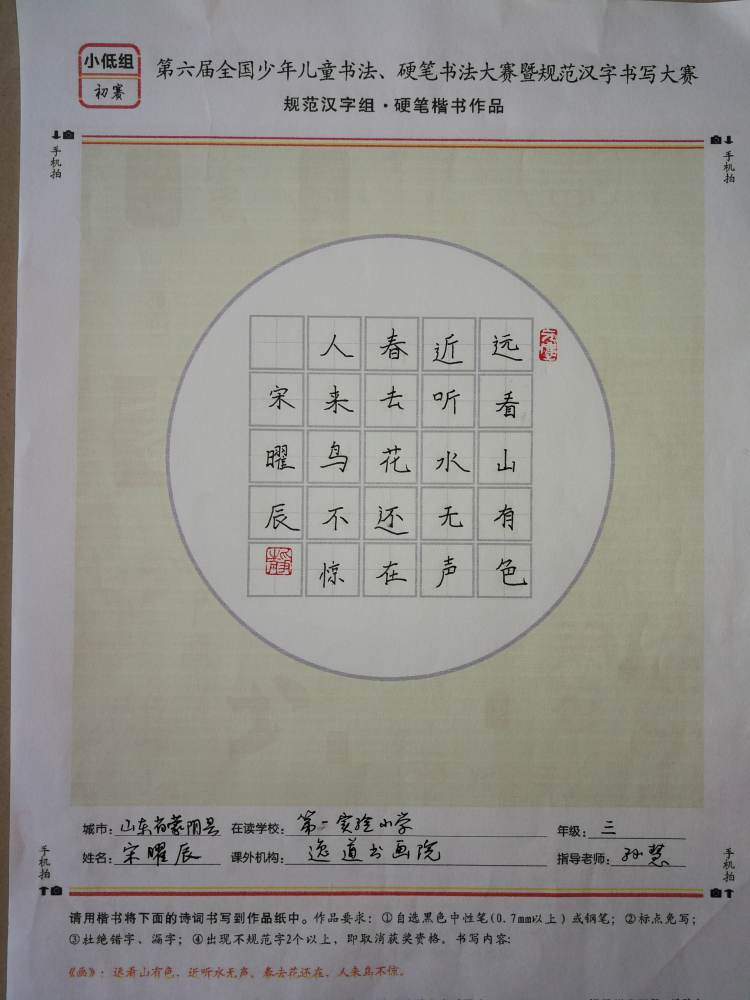 小低组
初赛
第六届全国少年儿童书法、硬笔书法大赛暨规范汉字书写大赛
规范汉字组·硬笔楷书作品
手机拍
手机拍
远看山有色
近听水无声
春去花还在
人来鸟不惊
宋曜辰
城市：山东省蒙阴县 在读学校：第一实验小学 年级：三
姓名：宋曜辰 课外机构：逸道书画院 指导老师：孙慧
手机拍
手机拍
请用楷书将下面的诗词书写到作品纸中。作品要求：①自选黑色中性笔(0.7mm以上）或钢笔；②标点免写；
③杜绝错字、漏字；④出现不规范字2个以上，即取消获奖资格。书写内容：
《画》：远看山有色，近听水无声。春去花还在，人来鸟不惊。